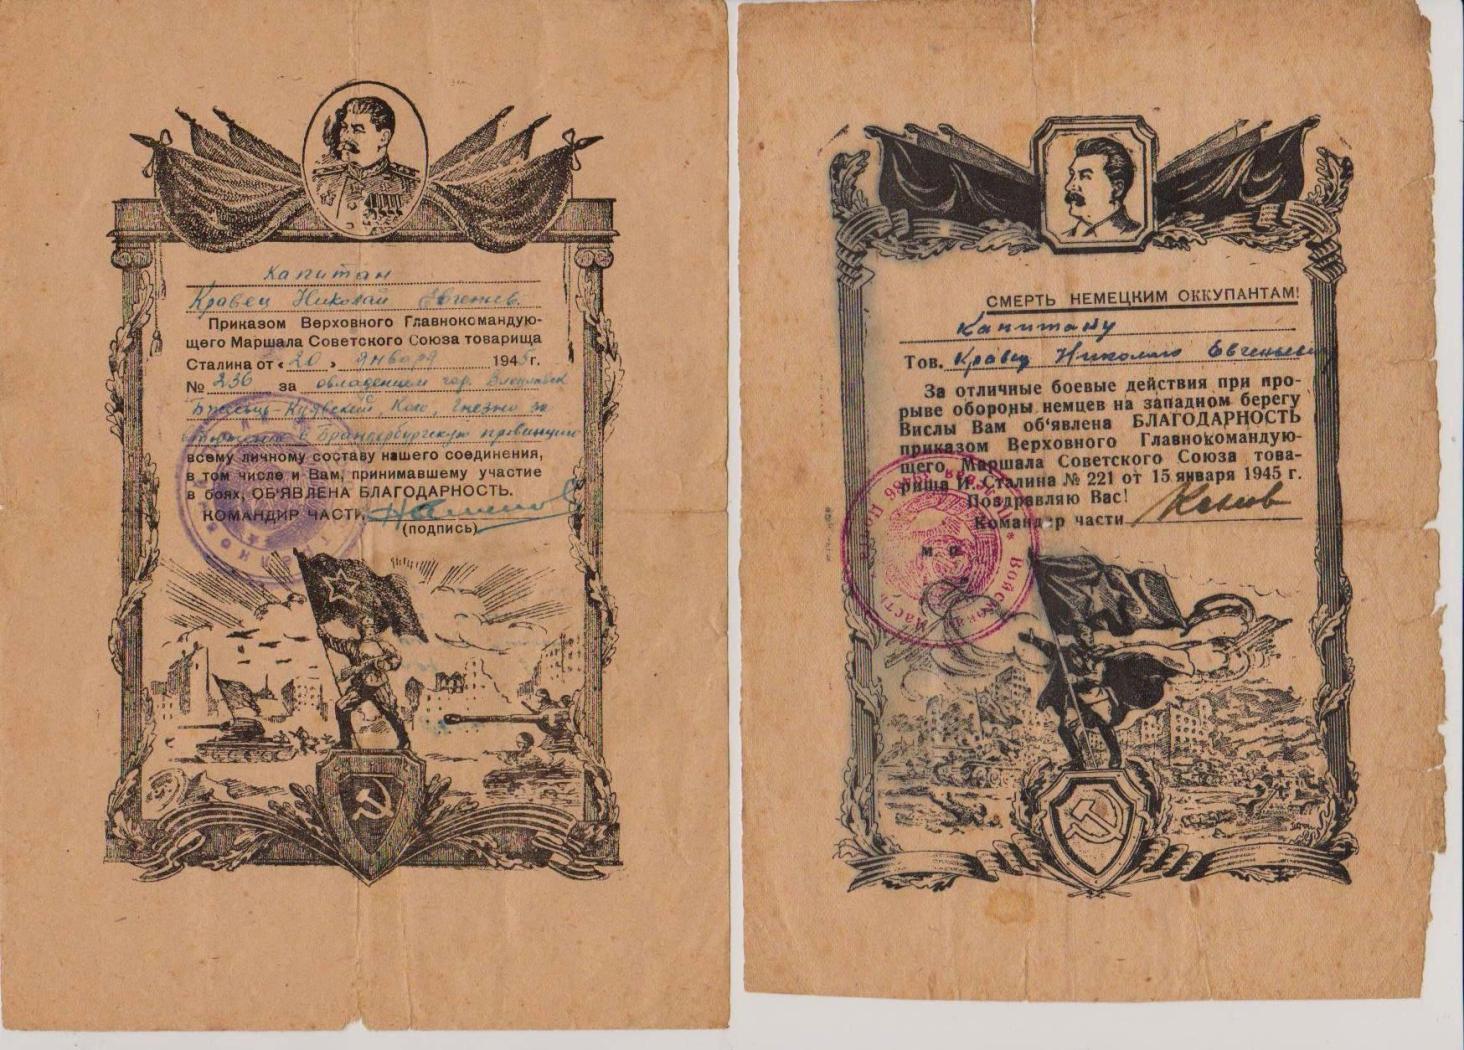 Капитан
Кравец Николай Евгеньев.
Приказом Верховного Главнокомандую-
щего Маршала Советского Союза товарища
Сталина от «20» января 1945г.
№ 236 за овладением гор.
Коло, Гнезно
Бранденбургскую провинцию
всему личному составу нашего соединения,
в том числе и Вам, принимавшему участие
в боях, ОБ'ЯВЛЕНА БЛАГОДАРНОСТЬ.
КОМАНДИР ЧАСТИ
(подпись)
СМЕРТЬ НЕМЕЦКИМ ОККУПАНТАМ!
Капитану
Тов. Кравец Николаю Евгеньеви
За отличные боевые действия при про-
рыве обороны немцев на западном берегу
Вислы Вам об'явлена БЛАГОДАРНОСТЬ
приказом Верховного Главнокомандую-
щего Маршала Советского Союза това-
рища И. Сталина № 221 от 15 января 1945 г.
Поздравляю Вас!
Командир части
м. п.
Войсковая часть Полевая почта